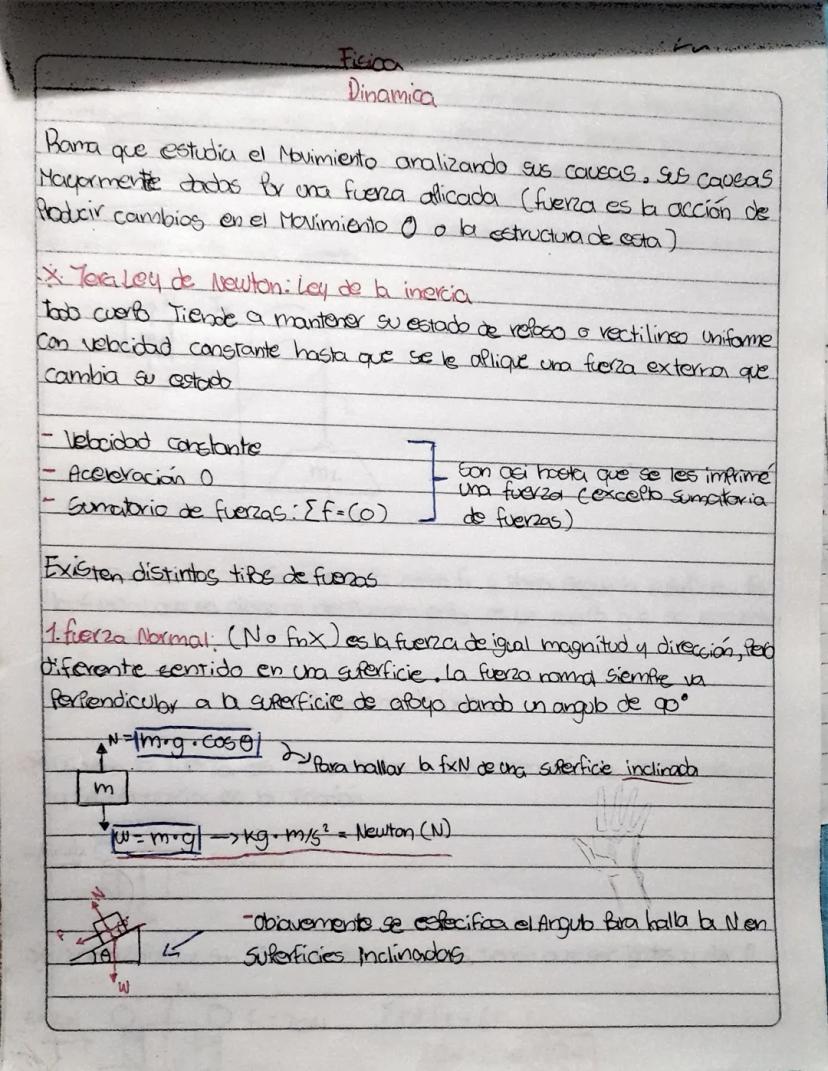 Fisica
Dinamica
Rama que estudia el Movimiento analizando sus causas. sus causas
Mayormente dadas Por una fuerza aplicada (fuerza es la acción de
Producir cambios en el Movimiento O o la estructura de esta)
* 1era Ley de Newton: Ley de la inercia
todo cuerpo Tiende a mantener su estado de reposo o rectilineo uniforme
Con velocidad constante hasta que se le aplique una fuerza externa que
cambia su estado
- Velocidad constante
- Aceleración O
- Sumatorio de fuerzas: Σf=(0)
Son asi hasta que se les imprimé
una fuerza (excepto sumatoria
de fuerzas)
Existen distintos tipos de fuerzas
1. fuerza Normal: (N o FnX) es la fuerza de igual magnitud y dirección, Pero
diferente sentido en una superficie. La fuerza normal siempre va
Perpendicular a la superficie de apoyo dando un angulo de 90°
N=|m·g·cosθ|
Para hallar la fxN de una superficie inclinada
m
|w=m·g| → kg·m/s² = Newton (N)
N
θ
W
- Obiavemente se especifica el Angulo Para halla la N en
Superficies Inclinadas